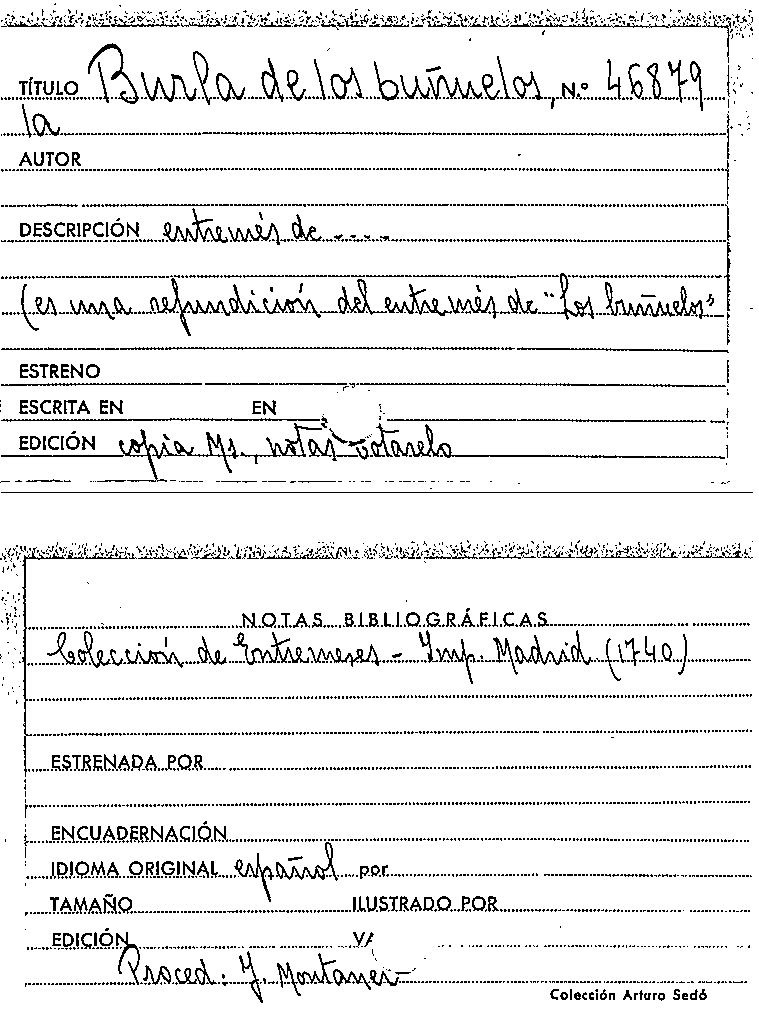 TÍTULO Burla de los buñuelos, N.º 46879
la
AUTOR
DESCRIPCIÓN entremés de ....
(es una refundición del entremés de "Los buñuelos"
ESTRENO
ESCRITA EN EN
EDICIÓN copia Ms., notas Cotarelo
NOTAS BIBLIOGRÁFICAS
Colección de Entremeses - Imp. Madrid (1740)
ESTRENADA POR
ENCUADERNACIÓN
IDIOMA ORIGINAL español por
TAMAÑO ILUSTRADO POR
EDICIÓN
Proced. J. Montaner
Colección Arturo Sedó